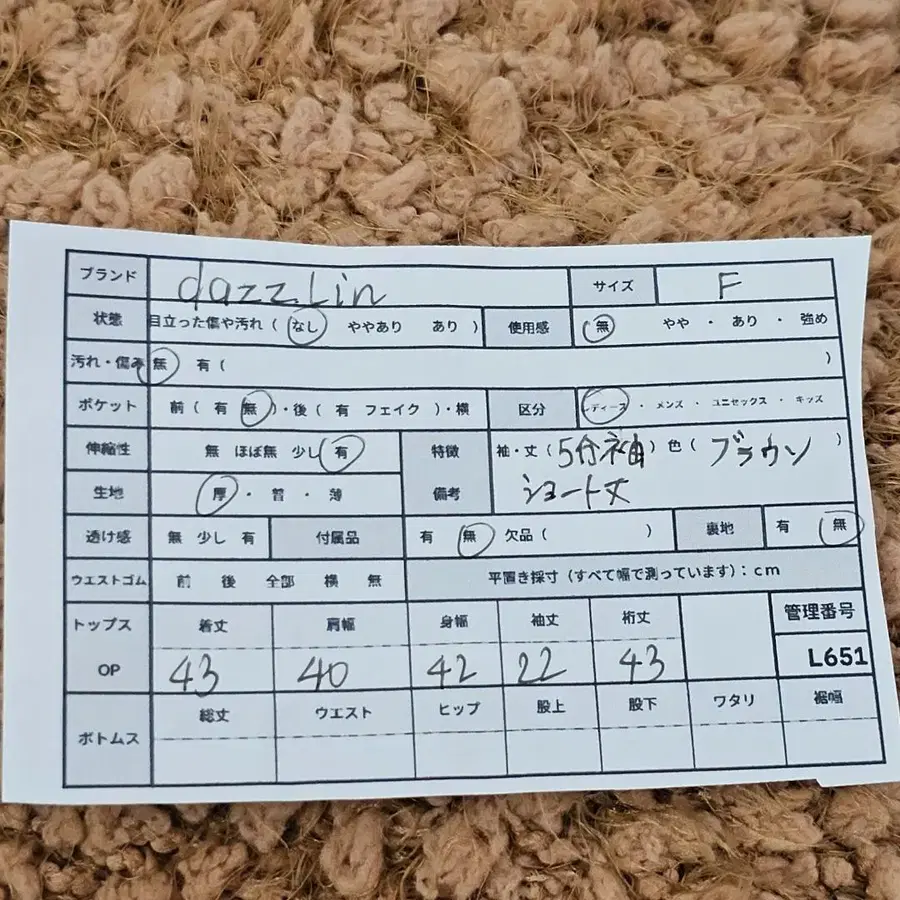 ブランド dazzLin サイズ F
状態 目立った傷や汚れ ( なし ややあり あり ) 使用感 無 やや ・ あり ・ 強め
汚れ・傷み 無 有 ( )
ポケット 前 ( 有 無 )・後 ( 有 フェイク )・横 区分 レディース ・ メンズ ・ ユニセックス ・ キッズ
伸縮性 無 ほぼ無 少し 有 特徴 袖・丈 ( 5分袖 ) 色 ( ブラウン )
生地 厚 ・ 普 ・ 薄 備考 ショート丈
透け感 無 少し 有 付属品 有 無 欠品 ( ) 裏地 有 無
ウエストゴム 前 後 全部 横 無 平置き採寸 (すべて幅で測っています) : cm
トップス 着丈 肩幅 身幅 袖丈 裄丈 管理番号
OP 43 40 42 22 43 L651
ボトムス 総丈 ウエスト ヒップ 股上 股下 ワタリ 裾幅